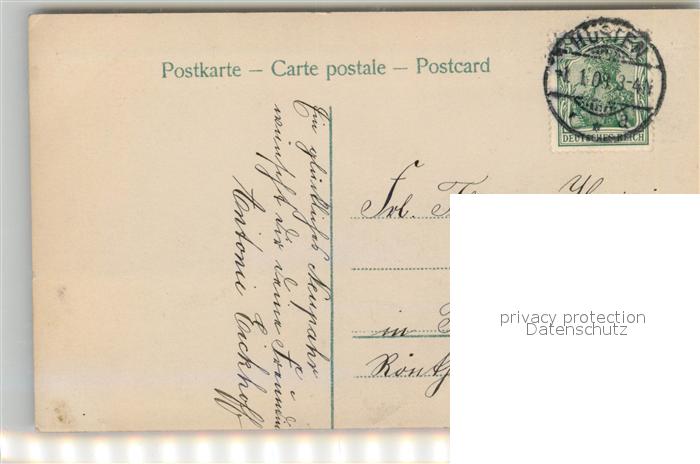 Postkarte – Carte postale – Postcard
HÜSTEN
1.1.09. 3-4N
DEUTSCHES REICH
Ein glückliches Neujahr
wünscht dir deine Freundin
Antonie Eickhoff
Frl.
in
Rönt
privacy protection
Datenschutz